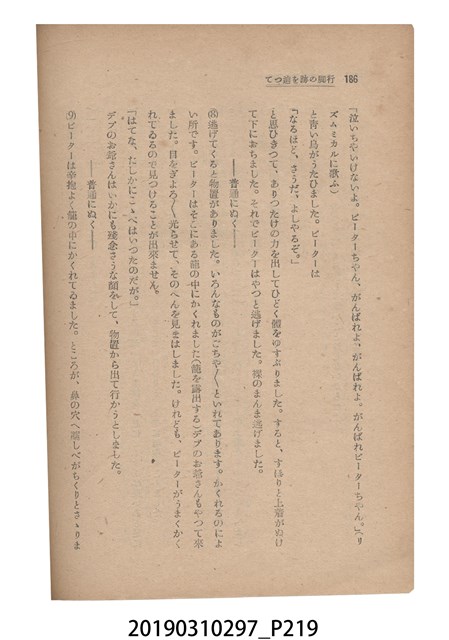 てつ追を跡の脚行　186
「泣いちやいけないよ。ピーターちやん、がんばれよ、がんばれよ。がんばれピーターちやん。」(リ
ズムミカルに歌ふ)
と青い鳥がうたひました。ピーターは
「なるほど、さうだ、よしやるぞ。」
と思ひきつて、ありつたけの力を出してひどく體をゆすぶりました。すると、すぽりと上着がぬけ
て下におちました。それでピーターはやつと逃げました。裸のまんま逃げました。
――普通にぬく――
(8)逃げてくると物置がありました。いろんなものがごちや〳〵といれてあります。かくれるのによ
い所です。ピーターはそこにある籠の中にかくれました(籠を露出する)デブのお爺さんもやつて來
ました。目をぎよろ〳〵光らせて、そのへんを見まはしました。けれども、ピーターがうまくかく
れてゐるので見つけることが出來ません。
「はてな、たしかにこゝへはいつたのだが。」
デブのお爺さんはいかにも殘念さうな顏をして、物置から出て行かうとしました。
――普通にぬく――
(9)ピーターは辛抱よく籠の中にかくれてゐました。ところが、鼻の穴へ藁しべがちくりとさゝりま
20190310297_P219